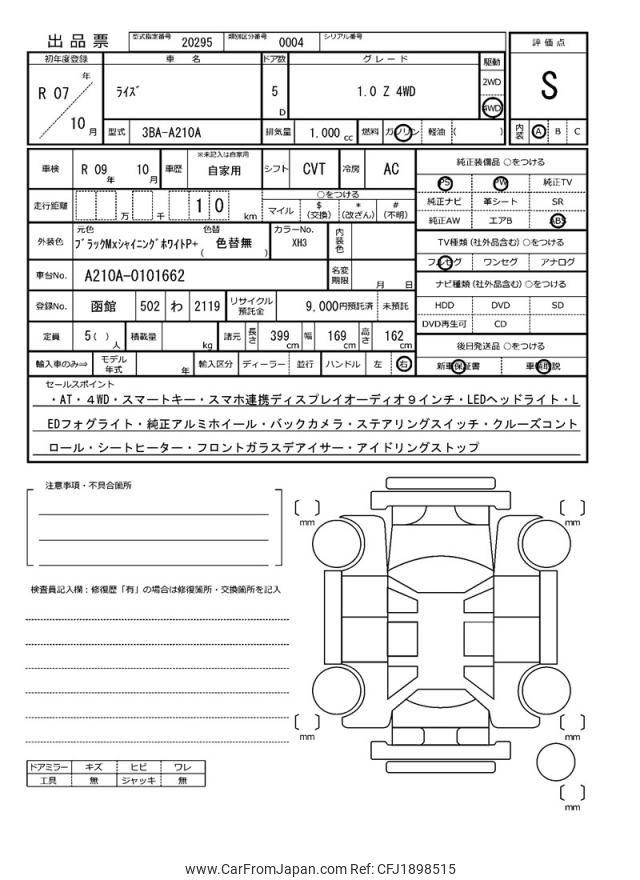 出品票 型式指定番号 20295 類別区分番号 0004 シリアル番号
評価点
S
内装 A B C
初年度登録 車名 ドア数 グレード 駆動
R 07 年 10 月 ﾗｲｽﾞ 5 D 1.0 Z 4WD 2WD 4WD
型式 3BA-A210A 排気量 1.000 cc 燃料 ガソリン 軽油 ( )
車検 R 09 年 10 月 車歴 ※未記入は自家用 自家用 シフト CVT 冷房 AC
走行距離 万 千 1 0 km ○をつける
マイル $ (交換) * (改ざん) # (不明)
外装色 元色 ﾌﾞﾗｯｸMxｼｬｲﾆﾝｸﾞﾎﾜｲﾄP+ 色替 ( 色替無 ) カラーNo. XH3 内装色
車台No. A210A-0101662 名変期限 月 日
登録No. 函館 502 わ 2119 リサイクル預託金 9,000円預託済 未預託
定員 5( ) 人 積載量 kg 諸元 長さ 399 cm 幅 169 cm 高さ 162 cm
輸入車のみ⇨ モデル年式 年 輸入区分 ディーラー 並行 ハンドル 左 右
純正装備品 ○をつける
PS PW 純正TV
純正ナビ 革シート SR
純正AW エアB ABS
TV種類 (社外品含む) ○をつける
フルセグ ワンセグ アナログ
ナビ種類 (社外品含む) ○をつける
HDD DVD SD
DVD再生可 CD
後日発送品 ○をつける
新車保証書 車輌取説
セールスポイント
・AT・4WD・スマートキー・スマホ連携ディスプレイオーディオ９インチ・LEDヘッドライト・L
EDフォグライト・純正アルミホイール・バックカメラ・ステアリングスイッチ・クルーズコント
ロール・シートヒーター・フロントガラスデアイサー・アイドリングストップ
注意事項・不具合箇所
検査員記入欄：修復歴「有」の場合は修復箇所・交換箇所を記入
ドアミラー キズ ヒビ ワレ
工具 無 ジャッキ 無
mm
mm
mm
mm
mm
www.CarFromJapan.com Ref: CFJ1898515